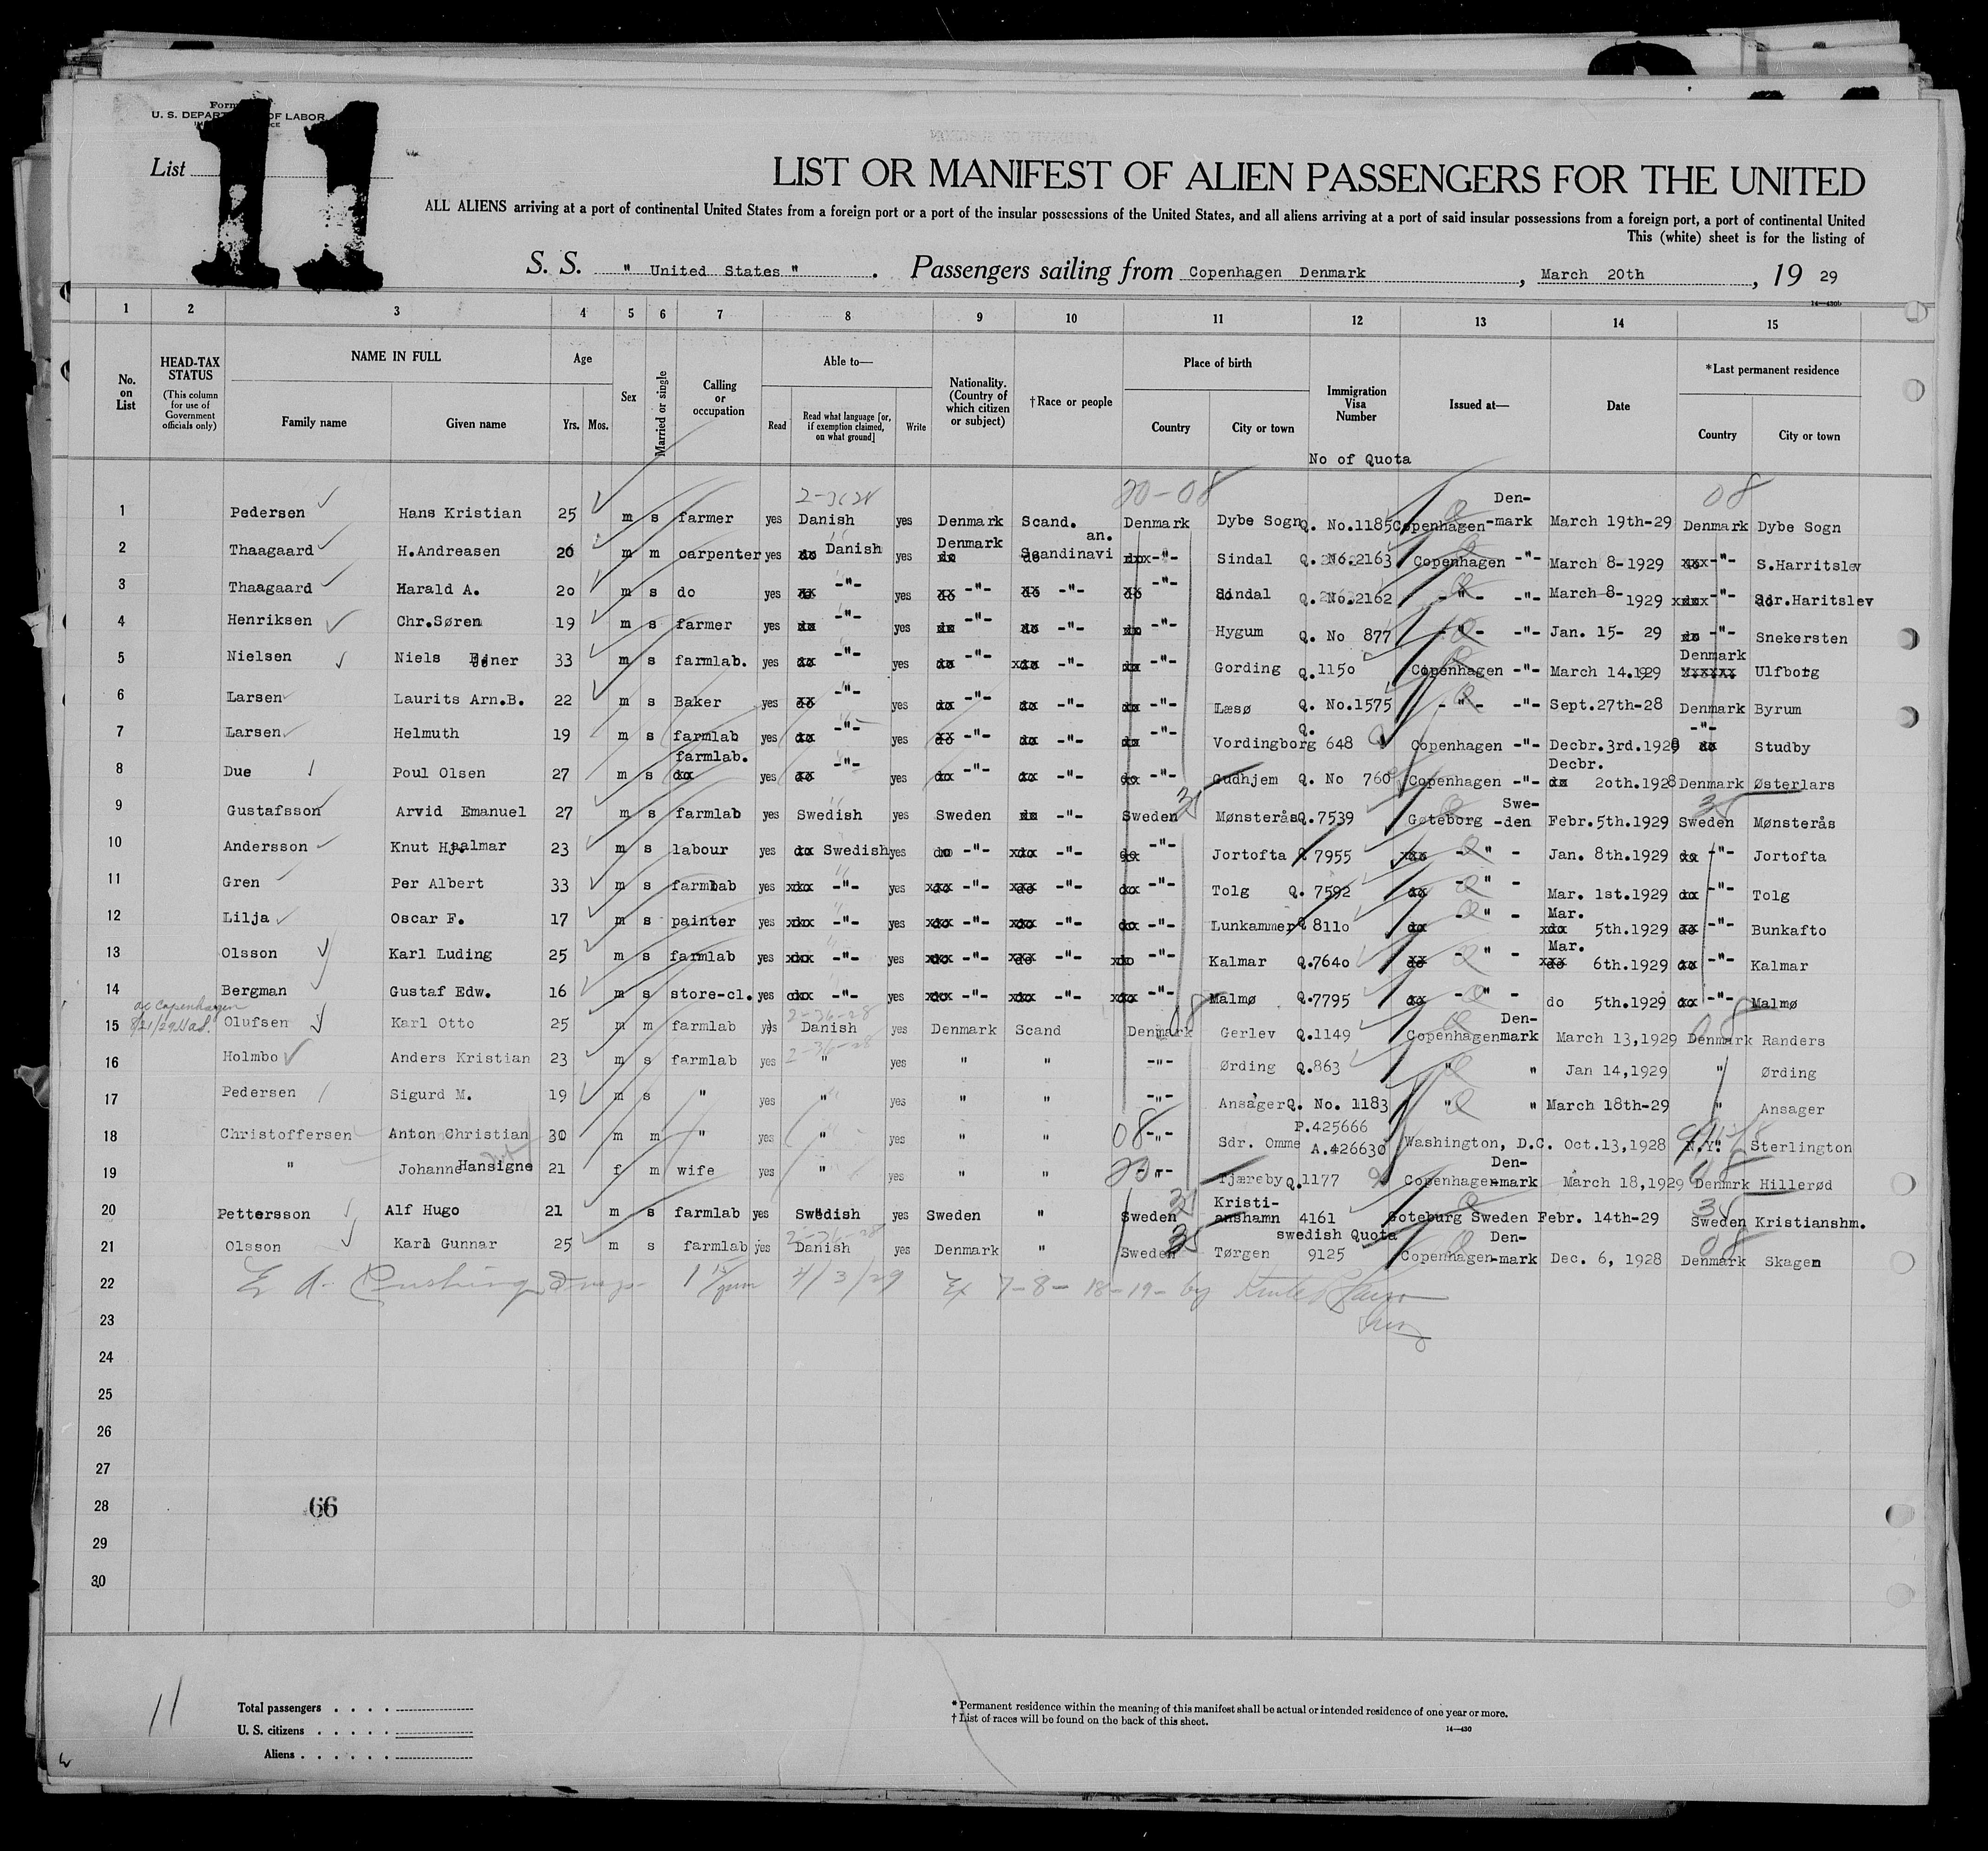 Form
U. S. DEPARTMENT OF LABOR
List 11
LIST OR MANIFEST OF ALIEN PASSENGERS FOR THE UNITED
ALL ALIENS arriving at a port of continental United States from a foreign port or a port of the insular possessions of the United States, and all aliens arriving at a port of said insular possessions from a foreign port, a port of continental United
This (white) sheet is for the listing of
S. S. " United States " . Passengers sailing from Copenhagen Denmark , March 20th , 19 29
14—430b
1 2 3 4 5 6 7 8 9 10 11 12 13 14 15
No. on List HEAD-TAX STATUS (This column for use of Government officials only) NAME IN FULL Family name Given name Age Yrs. Mos. Sex Married or single Calling or occupation Able to— Read Read what language [or, if exemption claimed, on what ground] Write Nationality. (Country of which citizen or subject) †Race or people Place of birth Country City or town Immigration Visa Number Issued at— Date *Last permanent residence Country City or town
No of Quota
20-08 08
1 Pedersen Hans Kristian 25 m s farmer yes Danish yes Denmark Scand. Denmark Dybe Sogn Q. No.1185 Copenhagen Den-mark March 19th-29 Denmark Dybe Sogn
2 Thaagaard H.Andreasen 20 m m carpenter yes do Danish yes Denmark do Scandinavian. -"- Sindal Q. No.2163 Copenhagen -"- March 8-1929 -"- S.Harritslev
3 Thaagaard Harald A. 20 m s do yes -"- yes -"- -"- -"- Sindal Q. No.2162 -"- -"- March 8-1929 -"- Sdr.Haritslev
4 Henriksen Chr.Søren 19 m s farmer yes -"- yes -"- -"- -"- Hygum Q. No 877 -"- -"- Jan. 15- 29 -"- Snekersten
5 Nielsen Niels Ejner 33 m s farmlab. yes -"- yes -"- -"- -"- Gording Q.1150 Copenhagen -"- March 14.1929 Denmark Ulfborg
6 Larsen Laurits Arn.B. 22 m s Baker yes -"- yes -"- -"- -"- Læsø Q. No.1575 -"- -"- Sept.27th-28 Denmark Byrum
7 Larsen Helmuth 19 m s farmlab yes -"- yes -"- -"- -"- Vordingborg Q. 648 Copenhagen -"- Decbr.3rd.1928 -"- do Studby
8 Due Poul Olsen 27 m s farmlab. yes -"- yes -"- -"- -"- Gudhjem Q. No 760 Copenhagen -"- Decbr. 20th.1928 Denmark Østerlars
9 Gustafsson Arvid Emanuel 27 m s farmlab yes Swedish yes Sweden do -"- Sweden Mønsterås Q.7539 Gøteborg Swe-den Febr.5th.1929 Sweden Mønsterås
10 Andersson Knut Hjalmar 23 m s labour yes do Swedish yes do -"- -"- -"- Jortofta Q 7955 -"- Jan. 8th.1929 do -"- Jortofta
11 Gren Per Albert 33 m s farmlab yes -"- yes -"- -"- do -"- Tolg Q. 7592 do -"- Mar. 1st.1929 do -"- Tolg
12 Lilja Oscar F. 17 m s painter yes -"- yes -"- -"- do -"- Lunkammer Q 8110 do -"- Mar. 5th.1929 -"- Bunkafto
13 Olsson Karl Luding 25 m s farmlab yes -"- yes -"- -"- -"- Kalmar Q.7640 do -"- Mar. 6th.1929 -"- Kalmar
14 Bergman Gustaf Edw. 16 m s store-cl. yes -"- yes -"- -"- -"- Malmø Q.7795 -"- do 5th.1929 -"- Malmø
15 Olufsen Karl Otto 25 m m farmlab yes Danish yes Denmark Scand Denmark Gerlev Q.1149 Copenhagen Den-mark March 13,1929 Denmark Randers
16 Holmbo Anders Kristian 23 m s farmlab yes " yes " " -"- Ørding Q.863 " " Jan 14,1929 " Ørding
17 Pedersen Sigurd M. 19 m s " yes " yes " " -"- Ansager Q. No. 1183 " " March 18th-29 " Ansager
18 Christoffersen Anton Christian 30 m m " yes " yes " " -"- Sdr. Omme P.425666 A.426630 Washington, D.C. Oct.13,1928 N.Y. Sterlington
19 " Johanne Hansigne 21 f m wife yes " yes " " -"- Tjæreby Q.1177 Copenhagen Den-mark March 18,1929 Denmrk Hillerød
20 Pettersson Alf Hugo 21 m s farmlab yes Swedish yes Sweden " Sweden Kristi-anshamn 4161 Goteburg Sweden Febr. 14th-29 Sweden Kristianshm.
21 Olsson Karl Gunnar 25 m s farmlab yes Danish yes Denmark " Sweden Tørgen swedish Quota 9125 Copenhagen Den-mark Dec. 6, 1928 Denmark Skagen
22 4/3/29 Ex 7-8-18-19- by
23
24
25
26
27
28 66
29
30
11
Total passengers
U. S. citizens
Aliens
* Permanent residence within the meaning of this manifest shall be actual or intended residence of one year or more.
† List of races will be found on the back of this sheet.
14—430